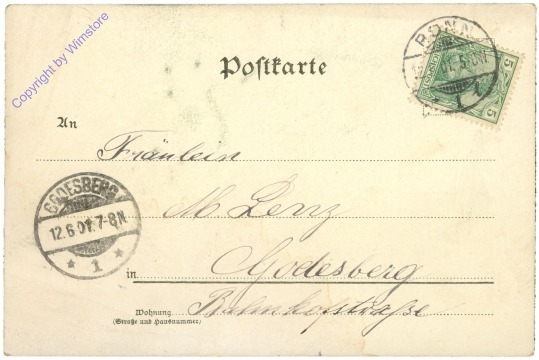 Copyright by Wimstore
BONN
5
5
Postkarte
An
Fräulein
M. Lenz
GODESBERG
12.6.01.7-8N
* 1 *
in Godesberg
Wohnung Bahnhofstraße
(Straße und Hausnummer)